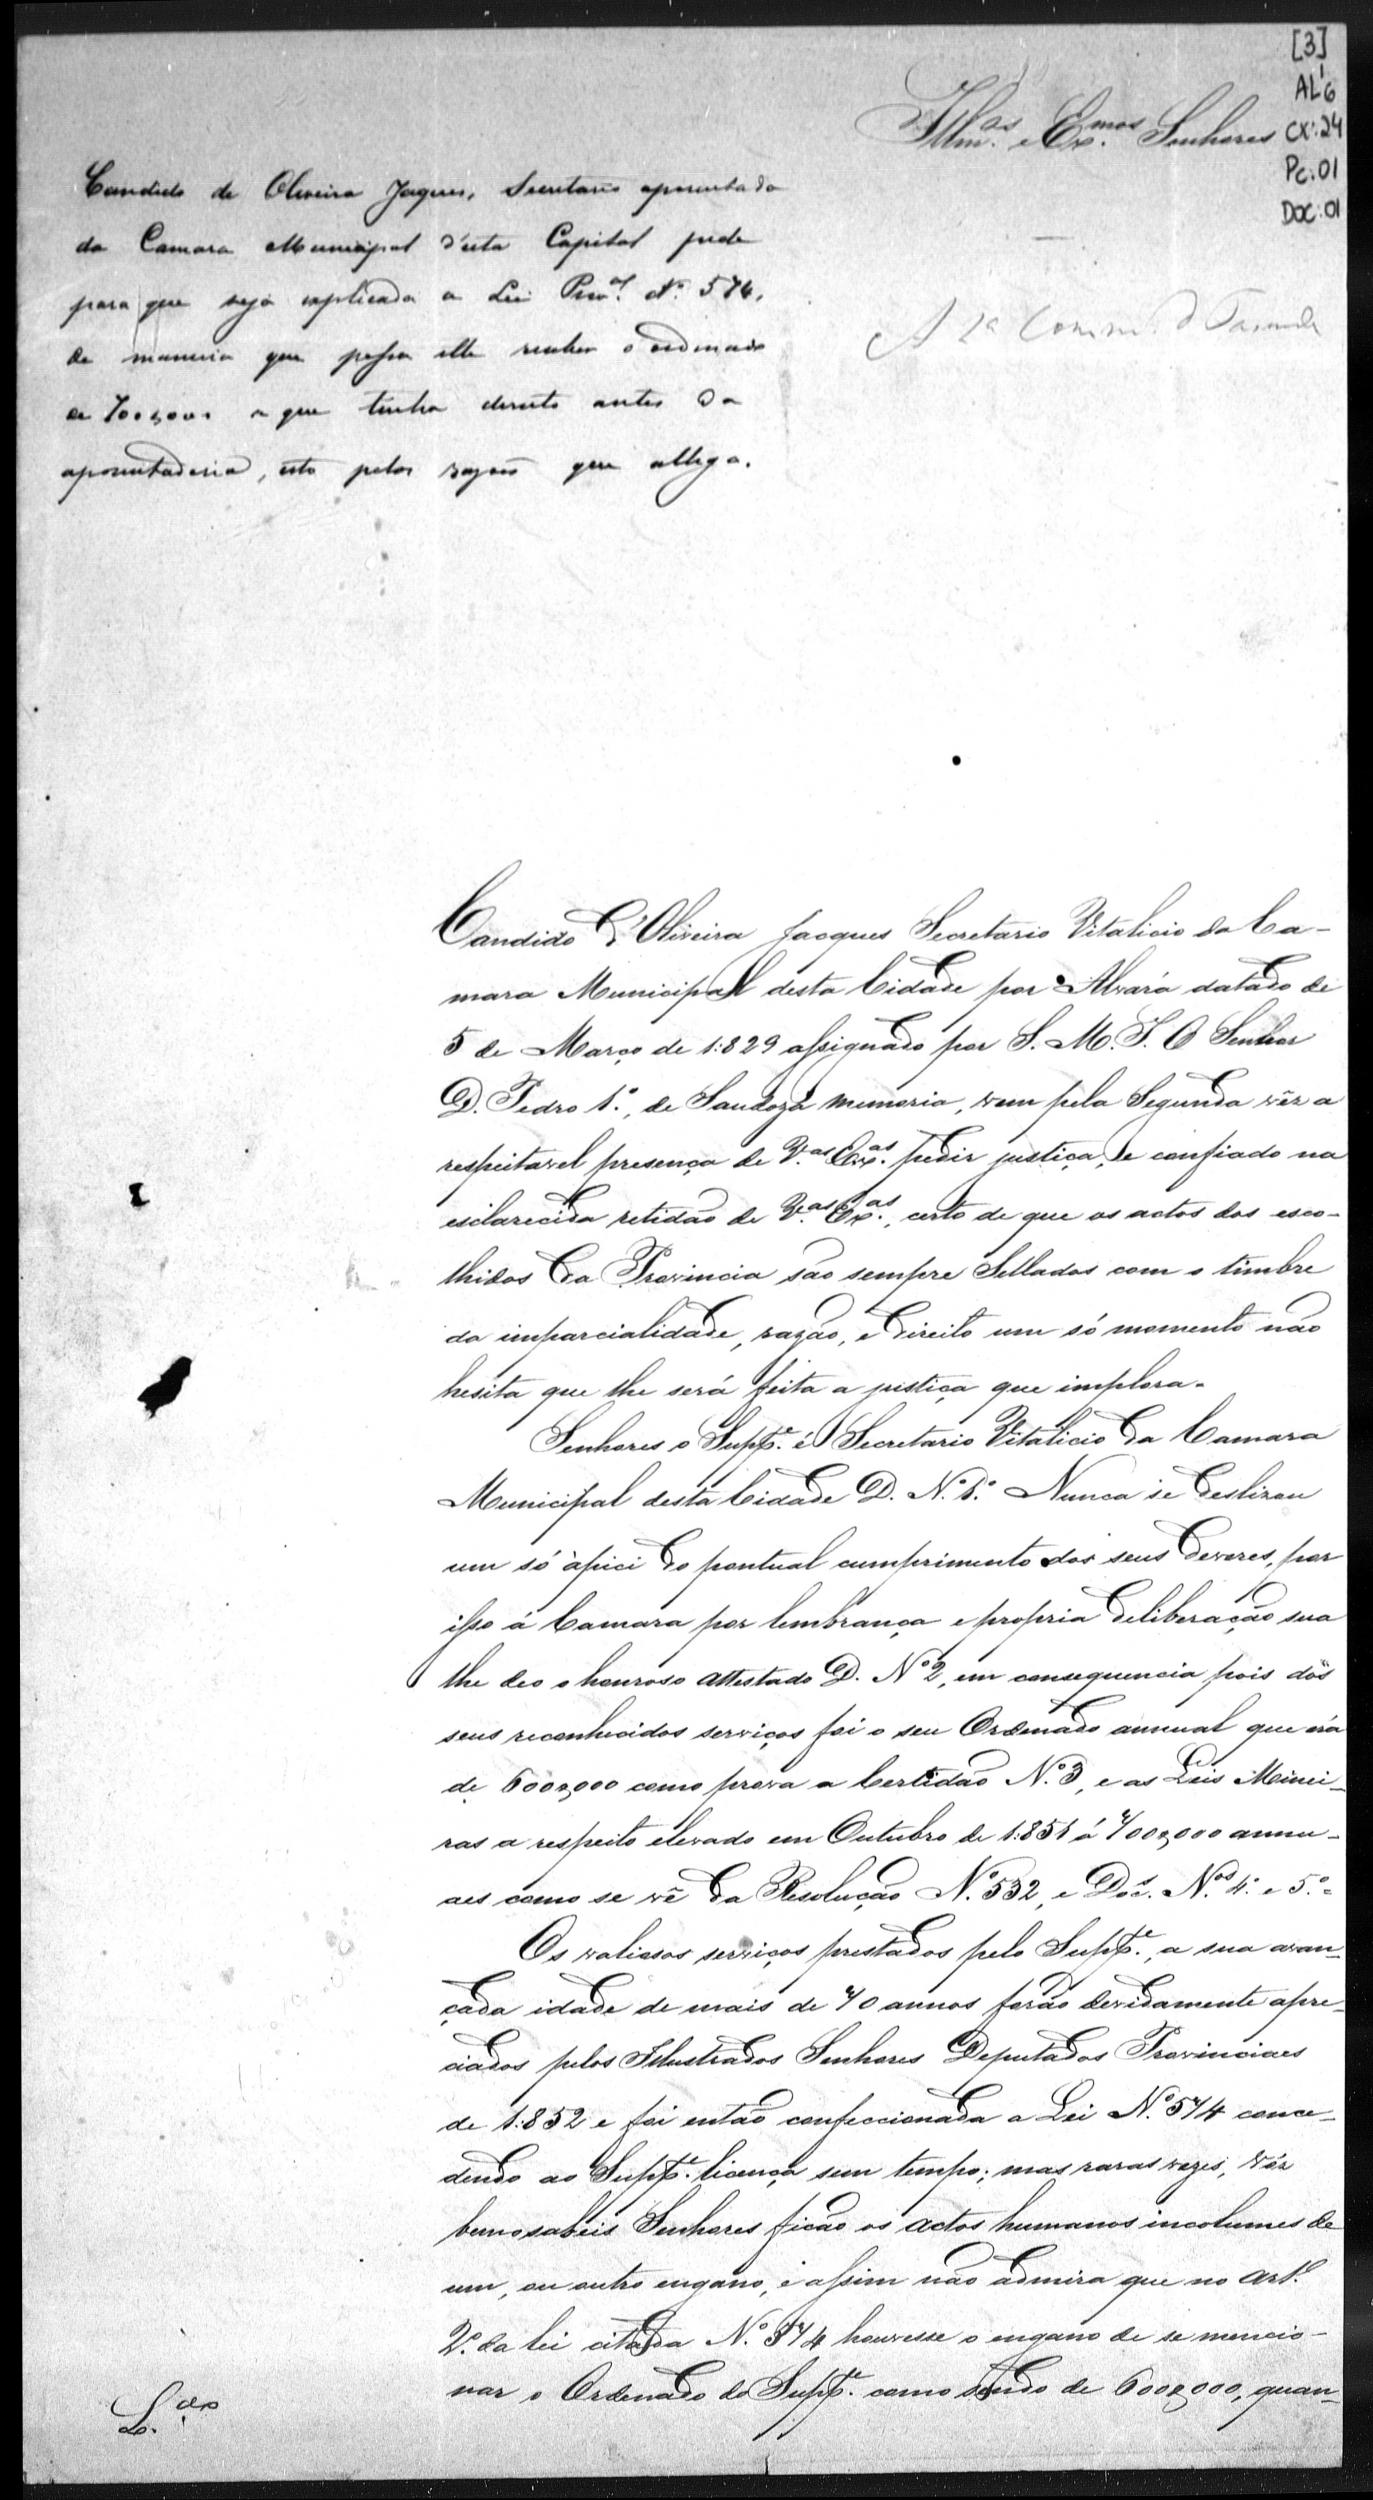 [3]
AL'6
CX:24
Pc.01
DOC:01
Illm.os e Ex.mos Senhores
Candido de Oliveira Jaques, Secretario aposentado
da Camara Municipal d'esta Capital pede
para que seja explicada a Lei Prov.al N.º 574,
de maneira que possa elle receber o ordenado
de 700$000 a que tinha direito antes da
aposentadoria, isto pelas rasões que allega.
A 2ª Comm. d Fazenda
Candido d'Oliveira Jacques Secretario Vitalicio da Ca-
mara Municipal desta Cidade por Alvará datado de
5 de Março de 1:829 assignado por S. M. I. O Senhor
D. Pedro 1.º, de Saudoza memoria, vem pela Segunda vêz a
respeitavel presença de V.as Ex.as pedir justiça, e confiado na
esclarecida retidão de V.as Ex.as, certo de que os actos dos esco-
lhidos da Provincia são sempre Sellados com o timbre
da imparcialidade, razão, e direito um só momento não
hesita que lhe será feita a justiça que implora.
Senhores o Supp.e é Secretario Vitalicio da Camara
Municipal desta Cidade D. N.º 1.º Nunca se deslizou
um só àpici do pontual cumprimento dos seus deveres, por
isso á Camara por lembrança e propria deliberação sua
lhe deo o honroso attestado D. Nº 2, em consequencia pois dos
seus reconhecidos serviços foi o seu Ordenado annual que era
de 600$000 como prova a Certidão N.º 3, e as Leis Minei-
ras a respeito elevado em Outubro de 1:851 á 700$000 annu-
aes como se vê da Resolução N.º 532, e Doc.s N.os 4.º e 5.º
Os valiosos serviços prestados pelo Supp.e, a sua avan-
çada idade de mais de 70 annos forão devidamente apre-
ciados pelos Illustrados Senhores Deputados Provinciaes
de 1:852 e foi então confeccionada a Lei N.º 574 conce-
dendo ao Supp.e licença sem tempo; mas raras vezes, Vós
bem sabeis Senhores ficão os actos humanos incolumes de
um, ou outro engano, e assim não admira que no art.º
2.º da lei citada N.º 574 houvesse o engano de se mencio-
nar o Ordenado do Supp.e como sendo de 600$000, quan-